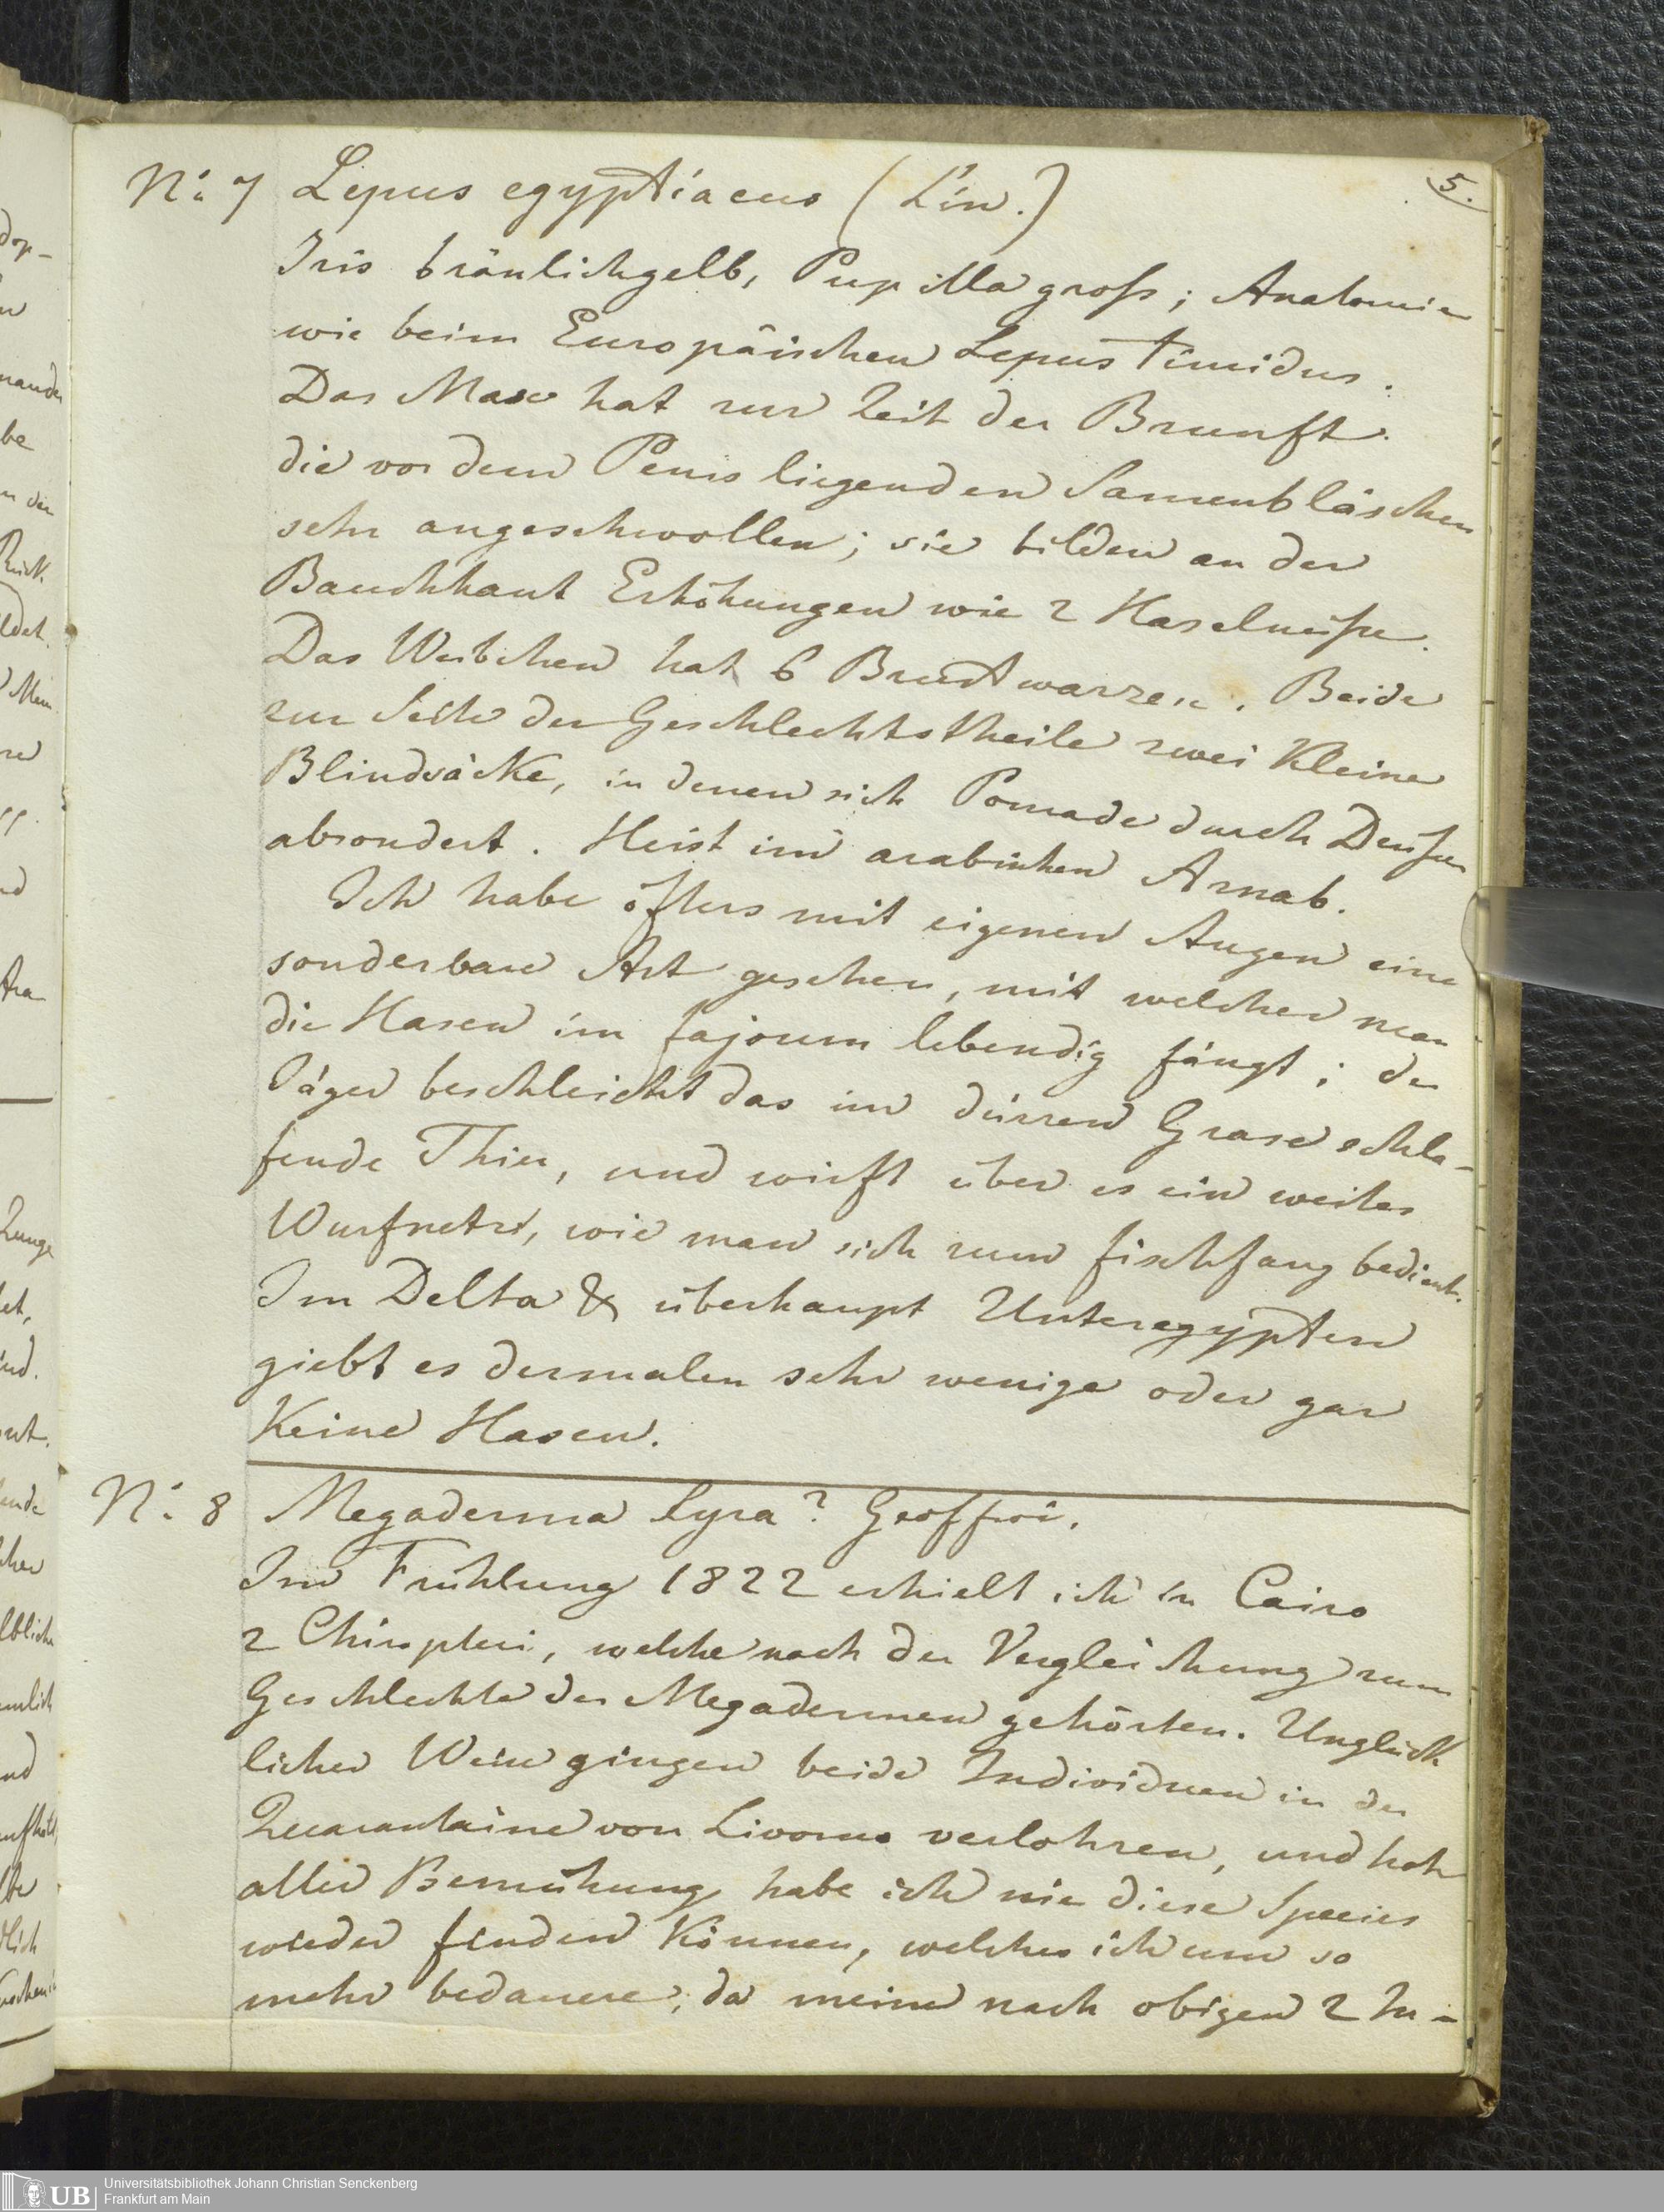 5.
No 7 Lepus egyptiacus (Lin.)
Iris bräunlichgelb, Pupilla gross; Anatomie
wie beim Europäischen Lepus timidus.
Das Masc hat zur Zeit der Brunft
die vor dem Penis liegenden Samenbläschen
sehr angeschwollen; sie bilden an der
Bauchhaut Erhöhungen wie 2 Haselnüsse.
Das Weibchen hat 6 Brustwarzen. Beide
zur Seite der Geschlechtstheile zwei kleine
Blindsäcke, in denen sich Pomade durch Drüsen
absondert. Heist im arabischen Arnab.
Ich habe öfters mit eigenen Augen eine
sonderbare Art gesehen, mit welcher man
die Hasen im fajoum lebendig fängt; der
Jäger beschleicht das im dürren Grase schla-
fende Thier, und wirft über es ein weites
Wurfnetz, wie man sich zum fischfang bedient.
Im Delta & überhaupt Unteregypten
giebt es dermalen sehr wenige oder gar
Keine Hasen.
No 8 Megaderma lyra? Geoffroi.
Im Frühlung 1822 erhielt ich in Cairo
2 Chiropteri, welche nach der Vergleichung zum
Geschlechte der Megadermen gehörten. Unglück
licher Weise gingen beide Individuen in der
Quarantaine von Livorno verlohren, und
aller Bemühung habe ich nie diese Species
wieder finden Können, welches ich um so
mehr bedauere, da meine nach obigen 2 In-
Universitätsbibliothek Johann Christian Senckenberg
Frankfurt am Main
UB